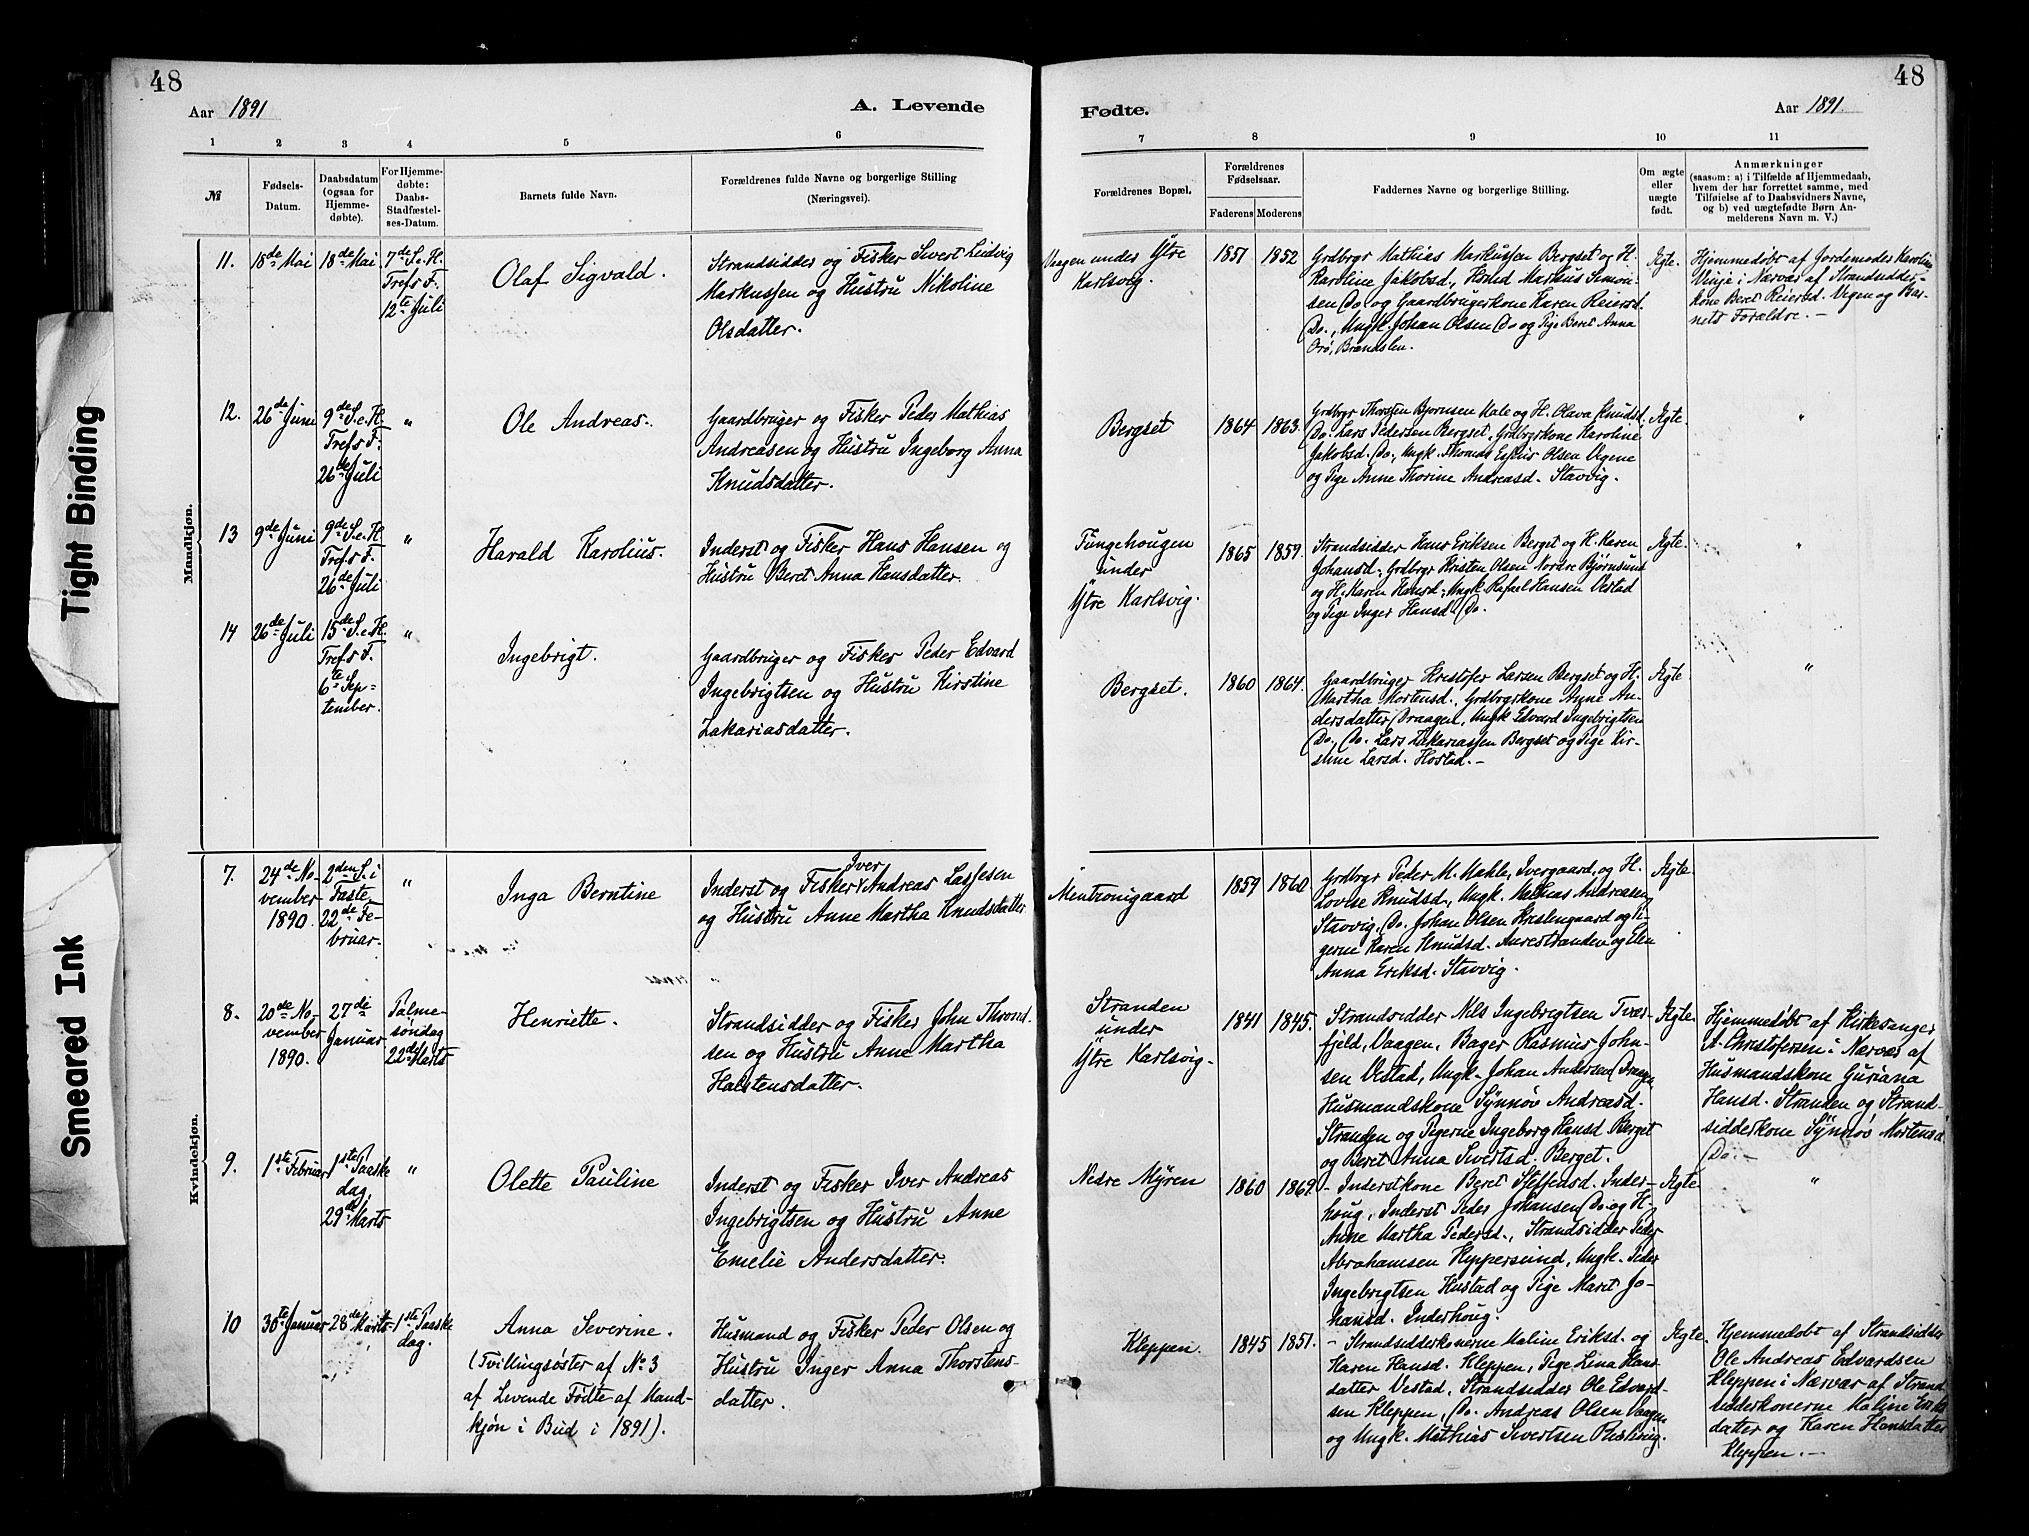 48
48
Aar 1891
A. Levende
Fødte.
Aar 1891.
1 2 3 4 5 6
7 8 9 10 11
№
Fødsels-
Datum.
Daabsdatum
(ogsaa for
Hjemme-
døbte).
For Hjemme-
døbte:
Daabs-
Stadfæstel-
ses-Datum.
Barnets fulde Navn.
Forældrenes fulde Navne og borgerlige Stilling
(Næringsvei).
Forældrenes Bopæl.
Forældrenes
Fødselsaar.
Faderens Moderens
Faddernes Navne og borgerlige Stilling.
Om ægte
eller
uægte
født.
Anmærkninger
(saasom: a) i Tilfælde af Hjemmedaab,
hvem der har forrettet samme, med
Tilføielse af to Daabsvidners Navne,
og b) ved uægtefødte Børn An-
melderens Navn m. V.)
Tight Binding
Smeared Ink
Mandkjøn.
11.
18de Mai
18de Mai
7de S.e.H.
Trefs F.
12te Juli
Olaf Sigvald.
Strandsidder og Fisker Sivert Ludvig
Markussen og Hustru Nikoline
Olsdatter.
Vaagen under Ytre
Karlsvig.
1851 1852
Grdbrgr Mathias Markussen Bergset og H.
Karoline Jakobsd., Hosted Markus Simon-
sen Do og Gaardbrugerkone Karen Reiersd.
Do., Ungk. Johan Olsen Do og Pige Beret Anna
Orø, Brandslen.
Ægte.
Hjemmedøbt af Jordemoder Karoline
Vinje i Nærvær af Strandsidder-
kone Beret Reiersd. Vegen og Bar-
nets Forældre. -
12.
26de Juni
9de S.e.H.
Trefs F.
26de Juli
"
Ole Andreas.
Gaardbruger og Fisker Peder Mathias
Andreasen og Hustru Ingeborg Anna
Knudsdatter.
Bergset
1864 1863.
Grdbrgr Thorsten Bjørnsen Male og H. Olava Knudsd.
Do. Lars Pedersen Bergset, Grdbrgrkone Karoline
Jakobsd. Do., Ungk. Thomas Olsen Vegene
og Pige Anne Thorine Andreasd. Stavvig.
Ægte.
"
13
9de Juni
9de S.e.H.
Trefs F.
26de Juli
"
Harald Karolius.
Inderst og Fisker Hans Hansen og
Hustru Beret Anna Hansdatter.
Tungehougen
under
Ytre Karlsvig.
1865 1859.
Strandsidder Hans Eriksen Berget og H. Karen
Johansd., Grdbrgr Kristen Olsen Nordre Bjørnsund
og H. Karen Hansd., Ungk. Rafael Hansen Vestad
og Pige Inger Hansd. Do.
Ægte.
"
14
26de Juli
15de S.e.H.
Trefs F.
6te Sep-
tember.
"
Ingebrigt.
Gaardbruger og Fisker Peder Edvard
Ingebrigtsen og Hustru Kirstine
Zakariasdatter.
Bergset.
1860 1864.
Gaardbruger Kristofer Larsen Bergset og H.
Martha Mortensd., Grdbrgrkone Anne An-
dersdatter Draagen, Ungk Edvard Ingebrigtsen
Do., Do. Lars Zakariassen Bergset og Pige Kir-
stine Larsd. Hostad. -
Ægte
"
Kvindekjøn.
7.
24de No-
vember
1890.
2den S. i
Faste,
22de Fe-
bruar.
"
Inga Berntine
Iver
Inderst og Fisker Andreas Lassesen
og Hustru Anne Martha Knudsdatter
Mentronigaard
1859 1860.
Grdbrgr Peder M. Mahle, Ivergaard, og H.
Lovise Knudsd., Ungk. Mathias Andreasen
Stavvig. Do. Johan Olsen Kristengaard og Pi-
gerne Karen Knudsd. Aurestranden og Elen
Anna Eriksd. Stavvig.
Ægte
8.
20de No-
vember
1890.
27de
Januar
Palme-
søndag
22de Marts
Henriette.
Strandsidder og Fisker John Thrond-
sen og Hustru Anne Martha
Halstensdatter.
Stranden
under
Ytre Karlsvig.
1841 1845.
Strandsidder Nils Ingebrigtsen Tvær-
fjeld, Vaagen, Bager Rasmus John-
sen Vestad, Ungk. Johan Andersen Draagen
Husmandskone Synnøv Andreasd.
Stranden og Pigerne Ingeborg Hansd. Berget
og Beret Anna Sivertsd. Berget.
Ægte.
Hjemmedøbt af Kirkesanger
A. Christofersen i Nærvær af
Husmandskone Guriana
Hansd. Stranden og Strand-
sidderkone Synnøv Mortensd
Do. -
9.
1ste Februar
1ste Paaske
dag,
29de Marts
"
Olette Pauline
Inderst og Fisker Iver Andreas
Ingebrigtsen og Hustru Anne
Emelie Andersdatter.
Nedre Myren
1860 1869.
- Inderstkone Beret Steffensd. Inder-
houg, Inderst Peder Johansen Do og H.
Anne Martha Pedersd., Strandsidder Peder
Abrahamsen Kleppersund, Ungk. Peder
Ingebrigtsen Hustad og Pige Marit Jo-
hansd. Inderhoug.
Ægte
"
10
30te Januar
28de Marts
1ste Paaske
dag.
Anna Severine.
(Tvillingsøster af No 3
af Levende Fødte af Mand-
kjøn i Bud i 1891).
Husmand og Fisker Peder Olsen og
Hustru Inger Anna Thorstens-
datter.
Kleppen.
1845 1851.
- Strandsidderkonerne Maline Eriksd. og
Karen Hansd. Kleppen, Pige Lina Hans-
datter Vestad, Strandsidder Ole Edvard-
sen Kleppen, Do. Andreas Olsen Vaagen
og Ungk. Mathias Sivertsen
Ægte
Hjemmedøbt af Strandsidder
Ole Andreas Edvardsen
Kleppen i Nærvær af Strand-
sidderkonerne Maline Eriks-
datter og Karen Hansdatter
Kleppen. -